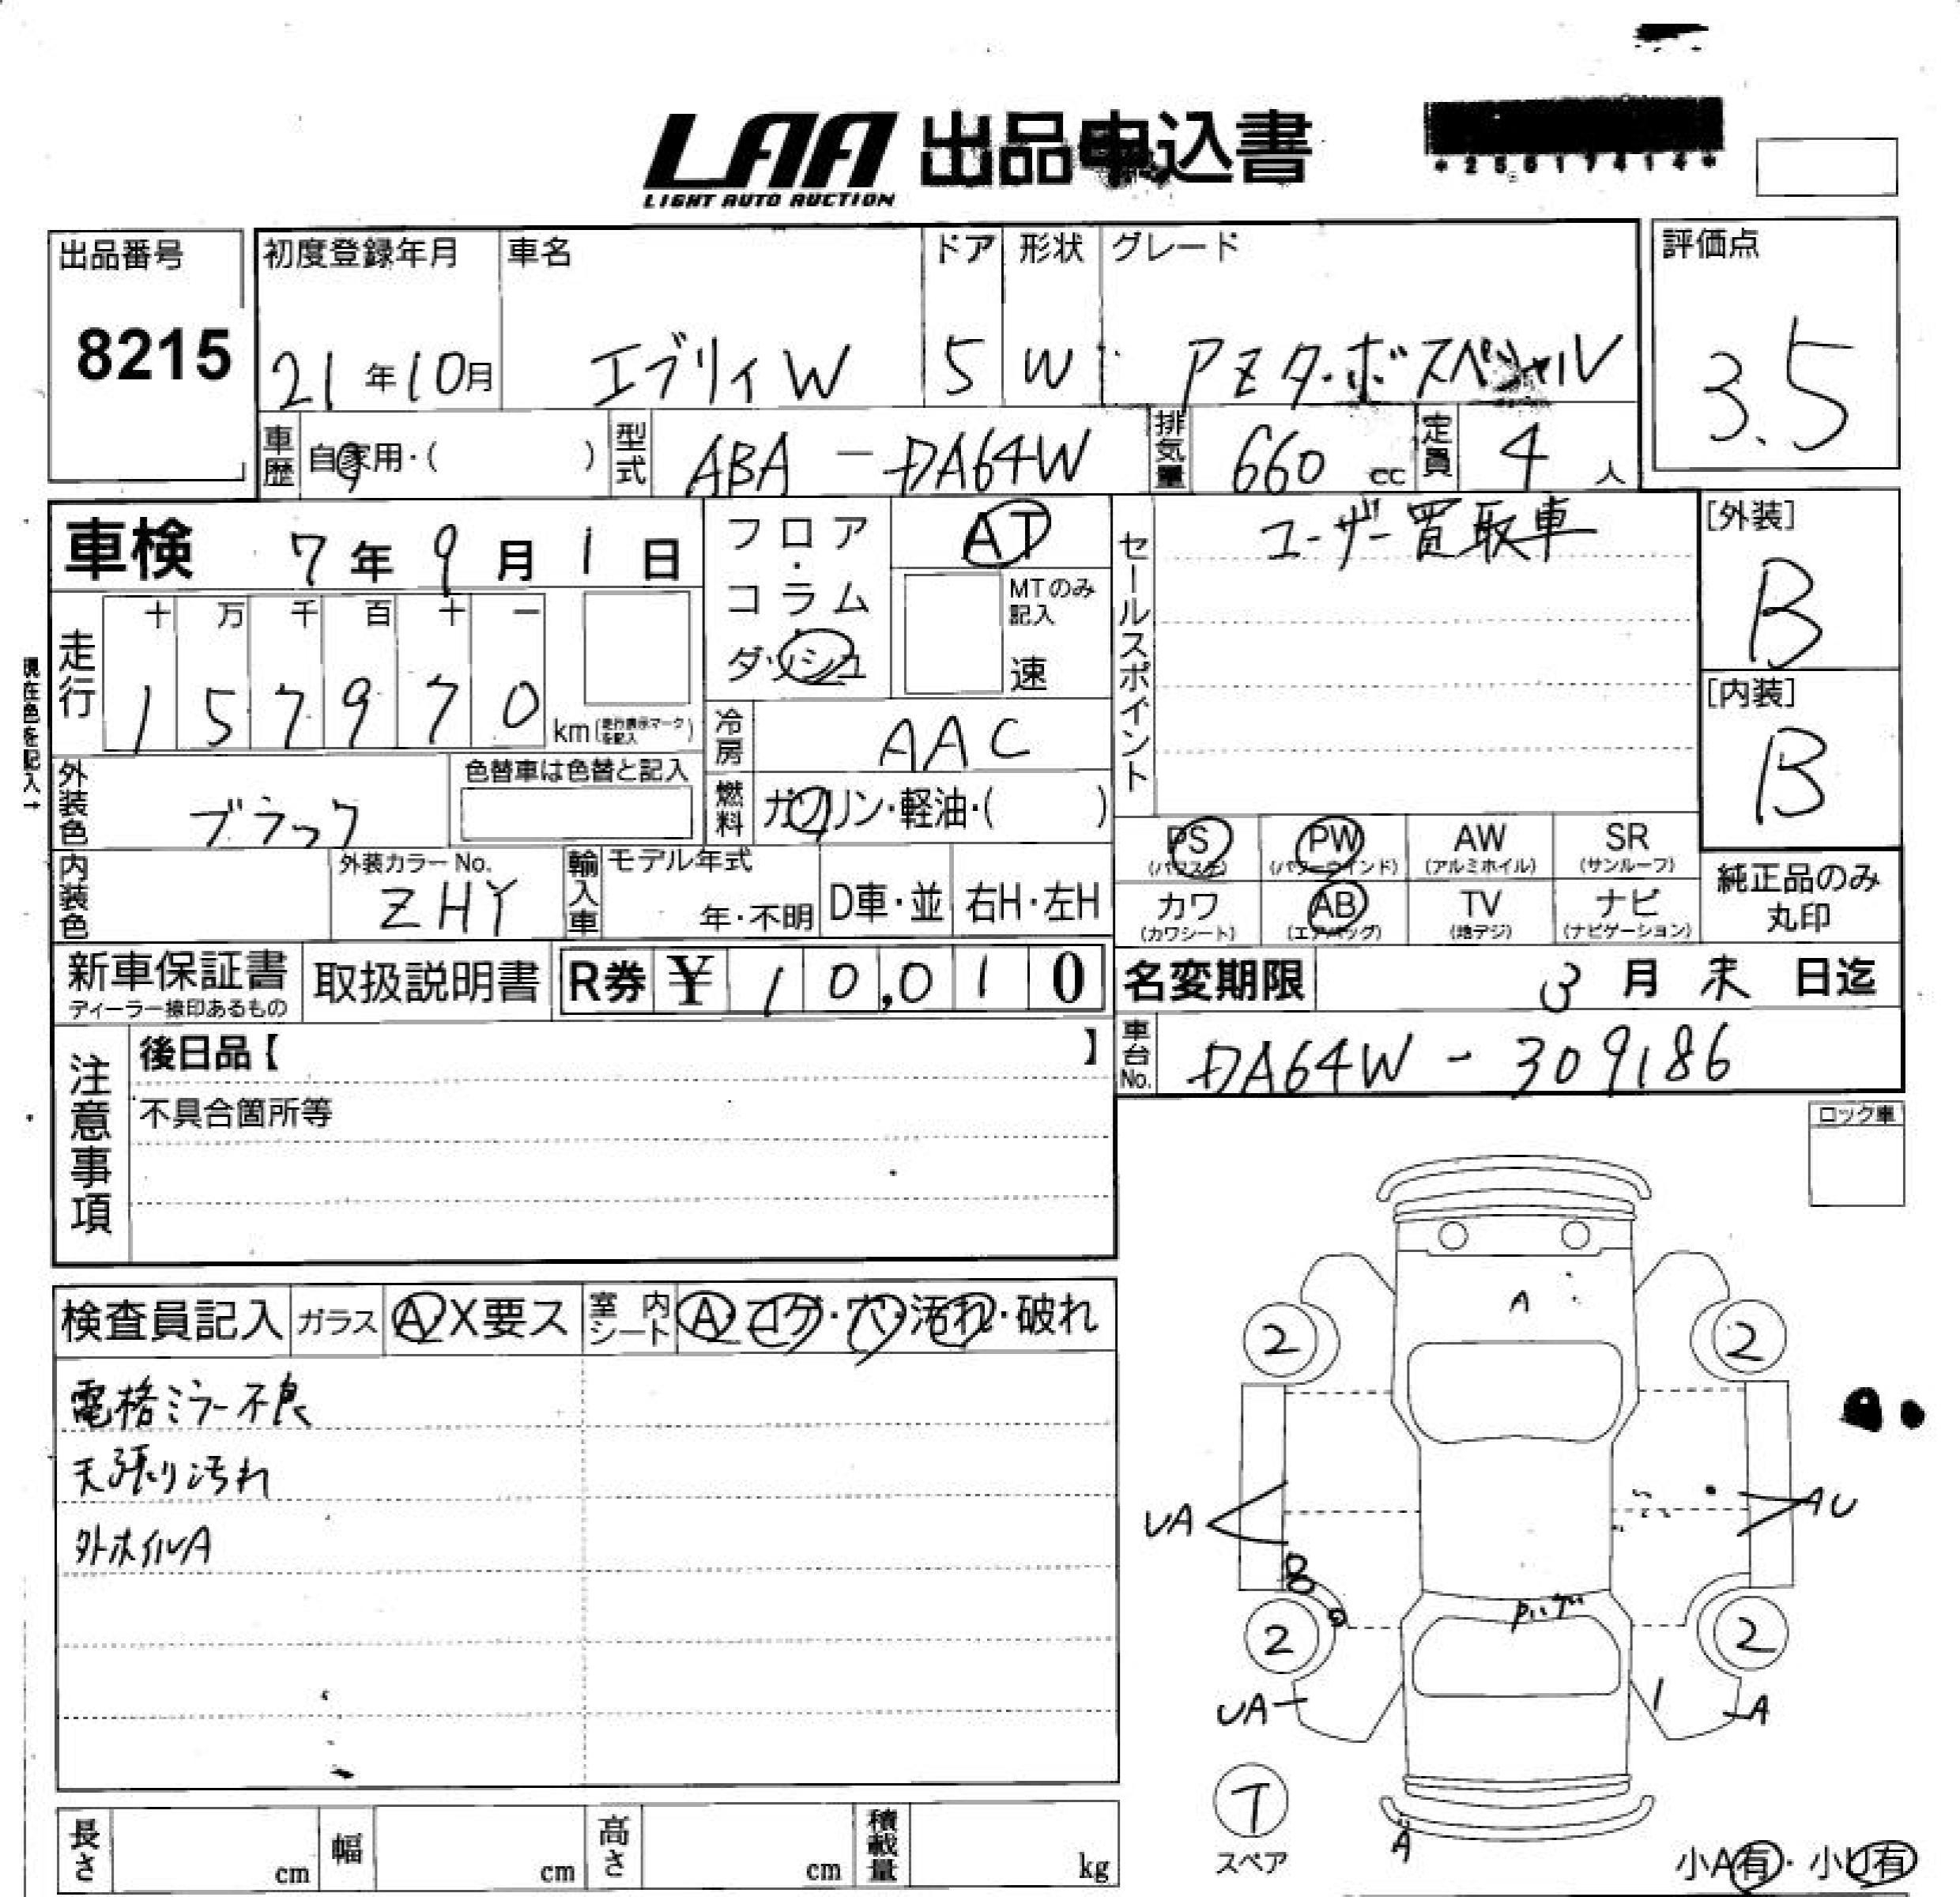 LAA 出品申込書
LIGHT AUTO AUCTION
*25617414*
出品番号
8215
初度登録年月
21年10月
車名
エブリィW
ドア
5
形状
W
グレード
PZターボスペシャル
評価点
3.5
車歴
自家用・( )
型式
ABA-DA64W
排気量
660 cc
定員
4人
車検 7年9月1日
フロア・コラム・ダッシュ
AT
MTのみ記入
速
セールスポイント
ユーザー買取車
[外装]
B
[内装]
B
現在色を記入→
走行
十 万 千 百 十 一
1 5 7 9 7 0 km (走行表示マークを記入)
冷房
AAC
外装色
ブラック
色替車は色替と記入
燃料
ガソリン・軽油・( )
PS (パワステ)
PW (パワーウインド)
AW (アルミホイル)
SR (サンルーフ)
カワ (カワシート)
AB (エアバッグ)
TV (地デジ)
ナビ (ナビゲーション)
純正品のみ丸印
内装色
外装カラーNo.
ZHY
輸入車
モデル年式
年・不明
D車・並
右H・左H
新車保証書
ディーラー捺印あるもの
取扱説明書
R券 ¥ 10,010
名変期限 3月末日迄
車台No.
DA64W-309186
注意事項
後日品【 】
不具合箇所等
ロック車
検査員記入
ガラス
A X要ス
室内シート
A・コゲ・穴・汚れ・破れ
電格ミラー不良
天張り汚れ
外ホイルA
A
2
2
UA
AU
B
2
2
UA
A
T
スペア
A
小A有・小U有
長さ cm
幅 cm
高さ cm
積載量 kg